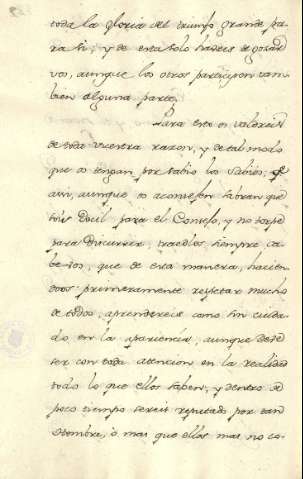 toda la gloria del triunfo grande pa
ra ti; y de esta solo habeis de gozar
vos, aunque los otros participen tam
bien alguna parte.
Para esto os valdreis
de toda vuestra razon, y de tal modo
que os tengan por sabio los sabios, q.e
aun, aunque os aconsejen sabran que
sois Docil para el Consejo, y no torpe
para Discurrir, traedlos siempre ca
be vos, que de esta manera, hacien
doos primeramente respetar mucho
de todos, aprendereis como sin cuida
do en la apariencia, aunque debe
ser con toda atencion en la realidad
todo lo que ellos saben, y dentro de
poco tiempo sereis reputado por tan
Hombre, ò mas que ellos mas no co-